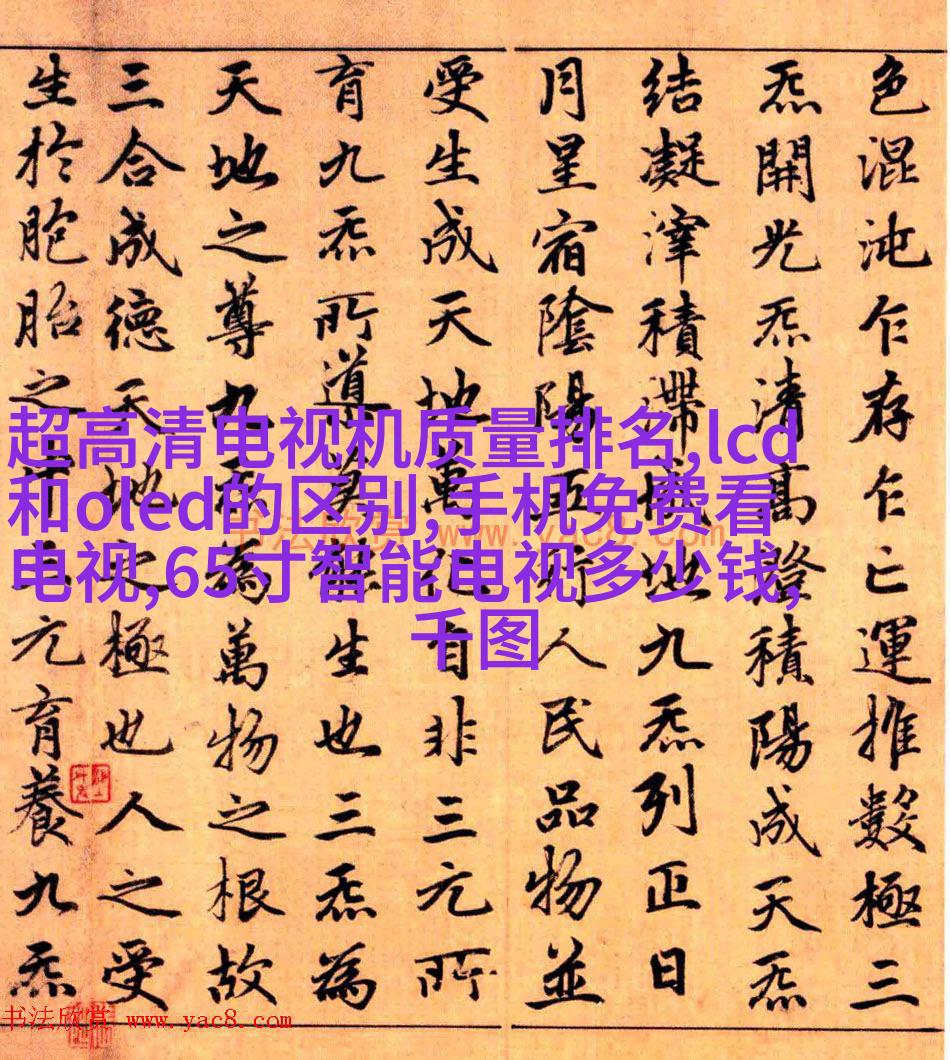 色混沌乍存乍亡運推數極三
炁開光炁清高澄積陽成天炁
結凝滓積滯成地九炁列正日
月星宿陰陽五行人民品物並
受生成天地萬化自非三元所
育九炁所導莫能生也三炁為
天地之尊九炁為萬物之根故
三合成德天地之極也人之受
生於胞胎之中三元育養九炁
超高清电视机质量排名,lcd
和oled的区别,手机免费看
电视,65寸智能电视多少钱,
千图
书法欣赏 www.yac8.com
书法欣赏 www.yac8.com